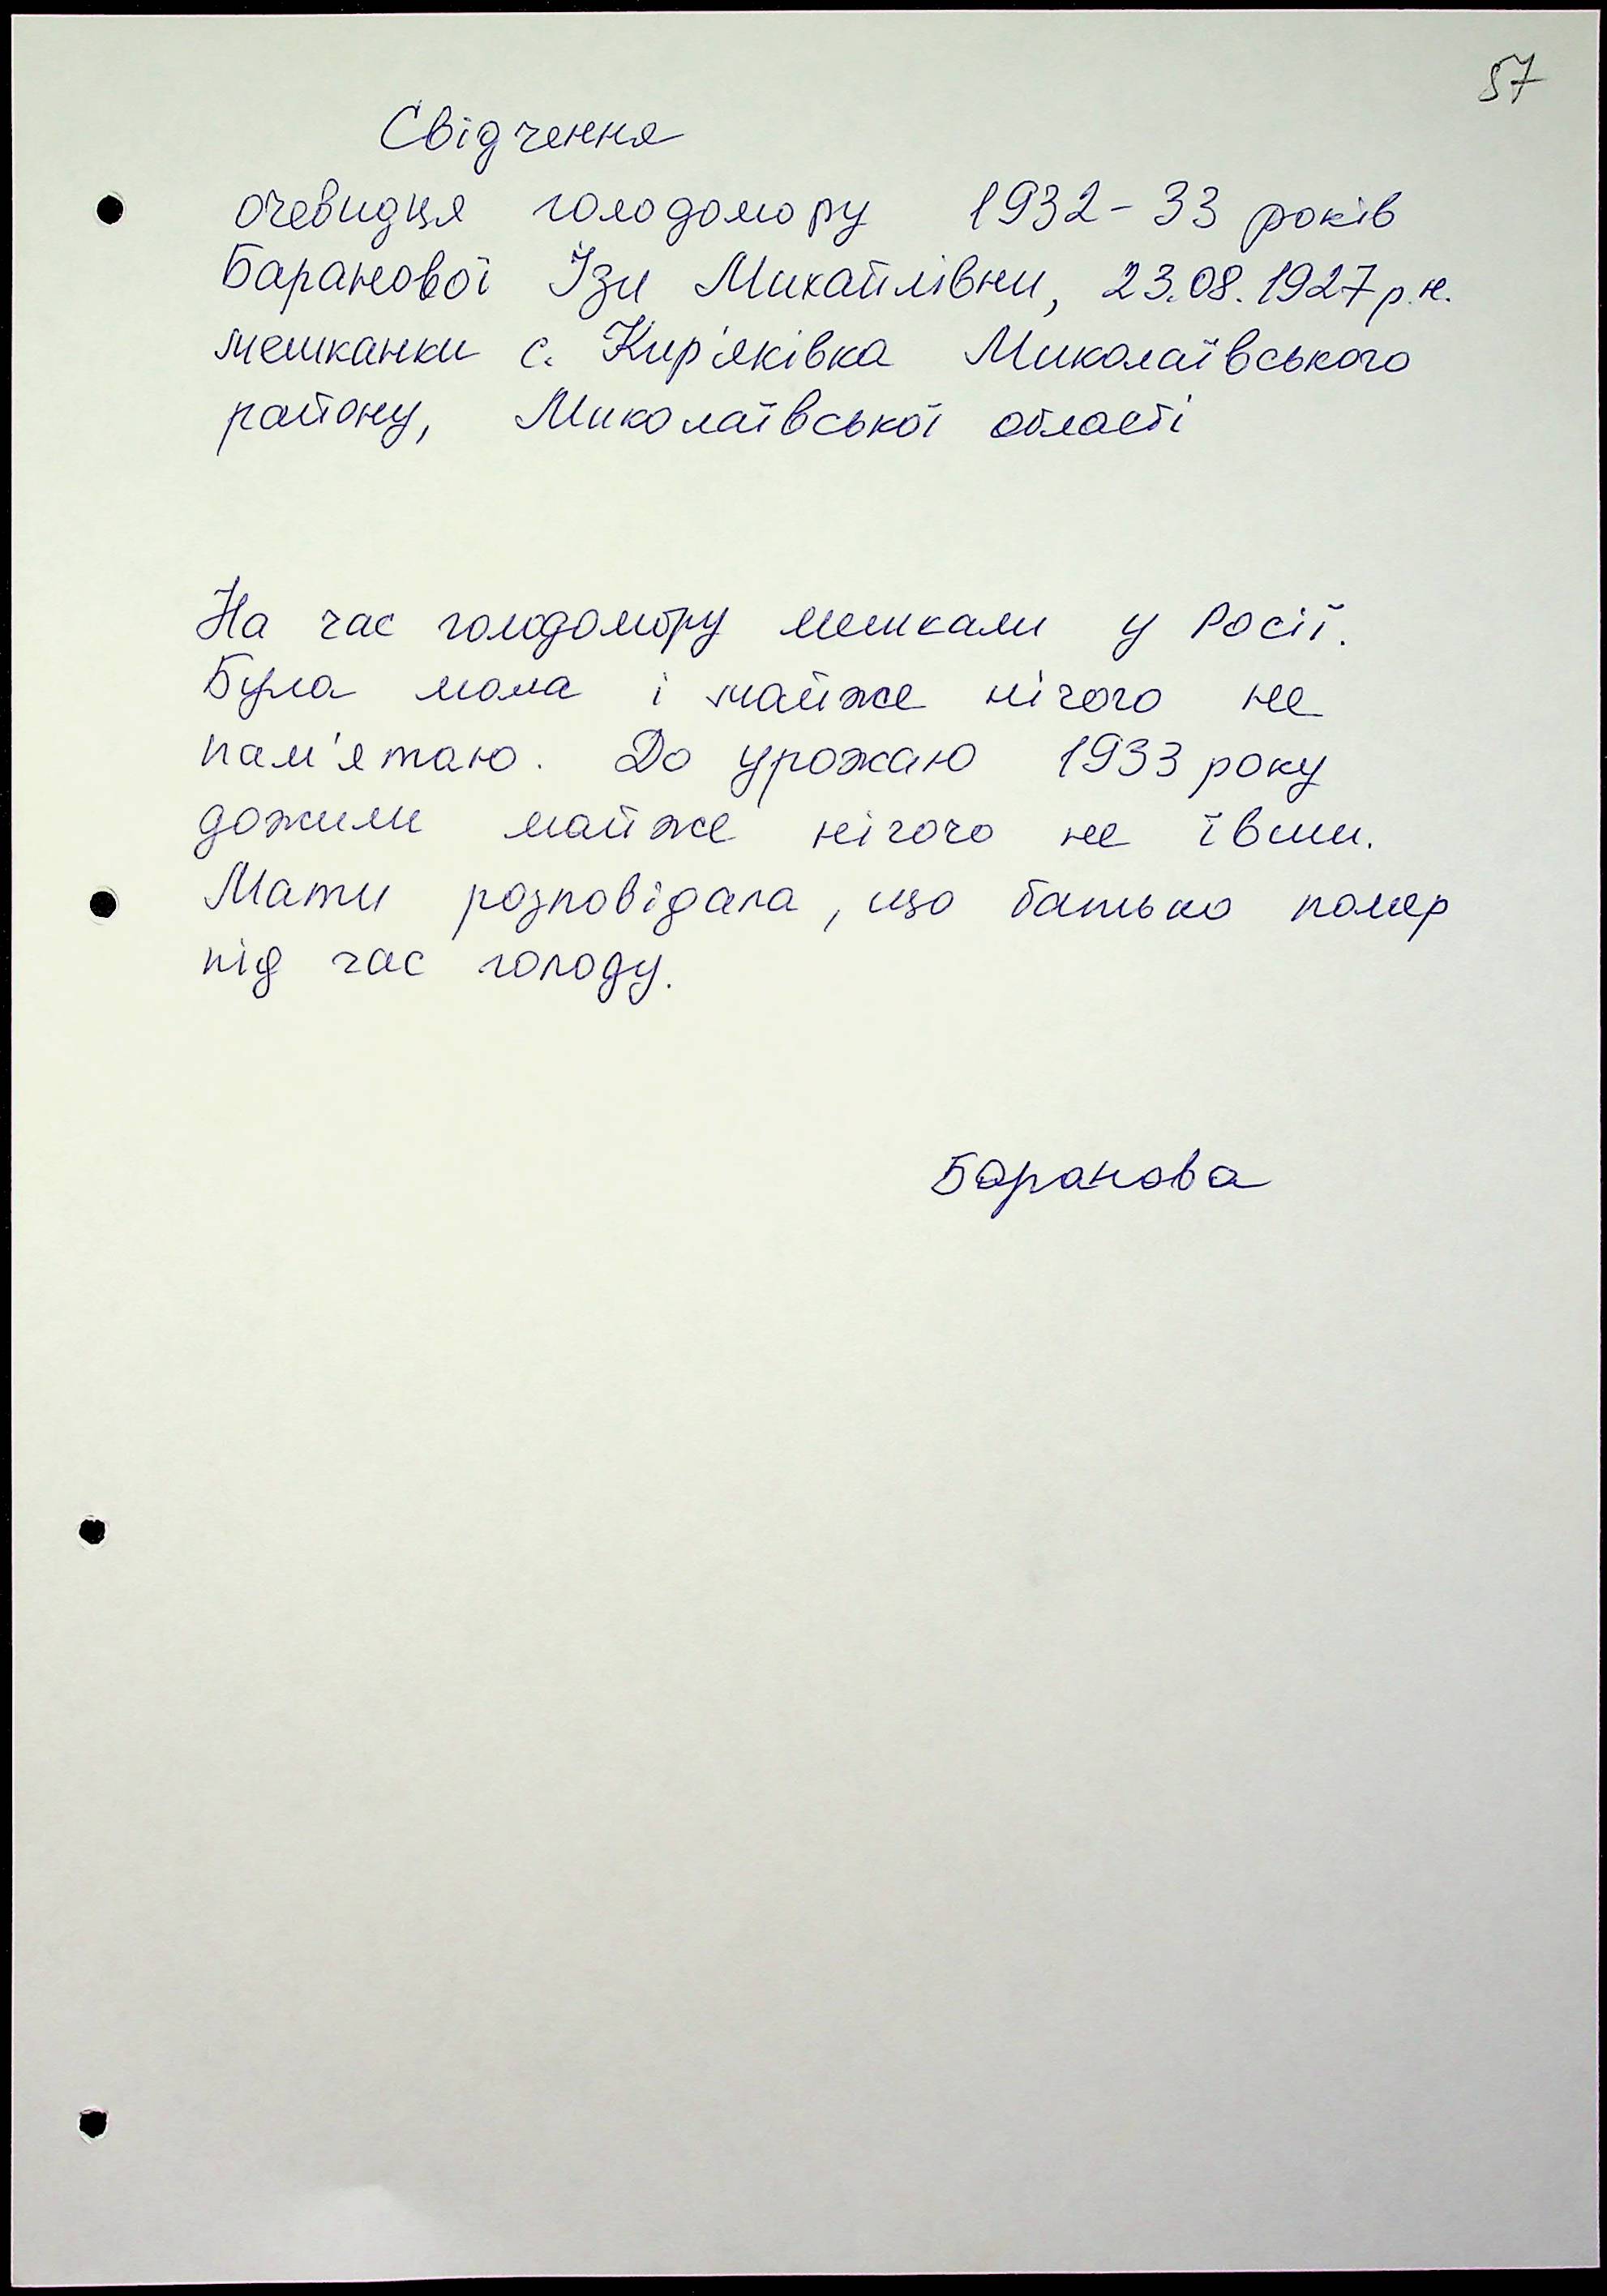 57
Свідчення
очевидця голодомору 1932-33 років
Баранової Ізи Михайлівни, 23.08.1927р.н.
мешканки с. Кир'яківка Миколаївського
району, Миколаївської області
На час голодомору мешкали у Росії.
Була мала і майже нічого не
пам'ятаю. До урожаю 1933 року
дожили майже нічого не ївши.
Мати розповідала, що батько помер
під час голоду.
Баранова